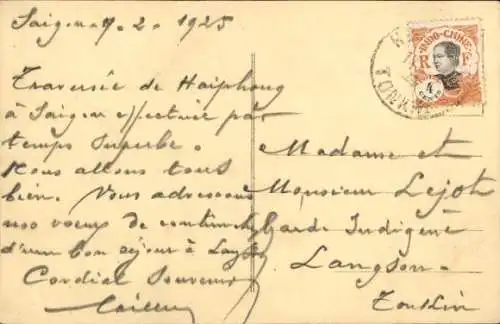 Saigon 9. 2. 1925
Traversée de Haiphong
à Saigon effectuée par
temps superbe.
Nous allons tous
bien. Vous adressons
nos voeux de
d'un bon séjour à
Cordial Souvenir
Madame et
Monsieur Lejot
Garde Indigène
Langson
Tonkin
INDO-CHINE
R F
4
TONKIN